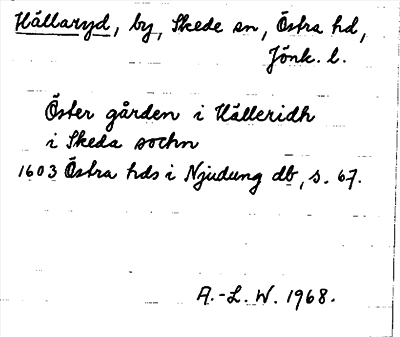 Hällaryd, by, Skede sn, Östra hd,
Jönk. l.
Öster gården i Hälleridh
i Skeda sochn
1603 Östra hds i Njudung db, s. 67.
A.-L. W. 1968.